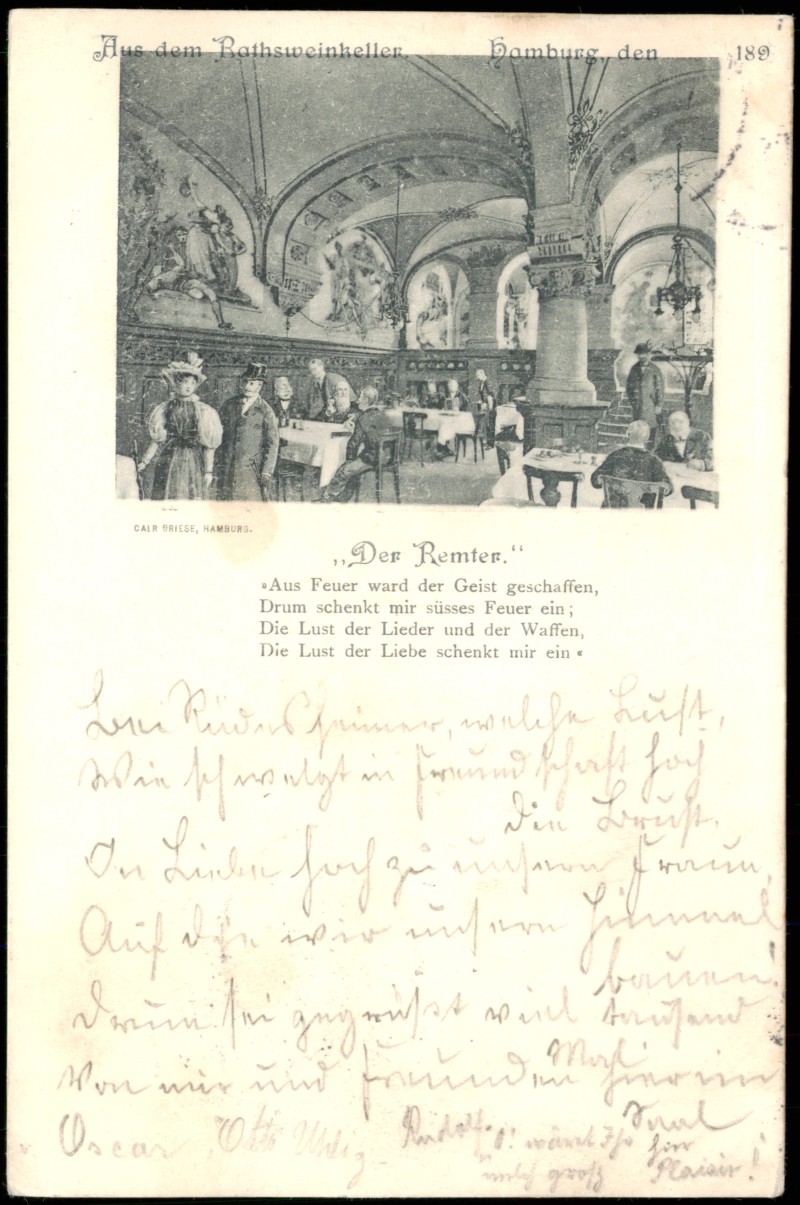 Aus dem Rathsweinkeller. Hamburg, den 189
CALR GRIESE, HAMBURG.
„Der Remter.“
»Aus Feuer ward der Geist geschaffen,
Drum schenkt mir süsses Feuer ein;
Die Lust der Lieder und der Waffen,
Die Lust der Liebe schenkt mir ein «
Bei Rüdesheimer, welche Lust,
Wie schwelgt in Freundschaft hoch
die Brust.
In Liebe hoch zu unsern Fraun,
Auf die wir unsern Himmel
bauen!
Drum sei gegrüßt viel tausend
Mahl
Von mir und Freunden hier im
Saal
Oscar, Otto Uhlig Rudolf.
O! wäret Ihr hier
welch groß Plaisir!